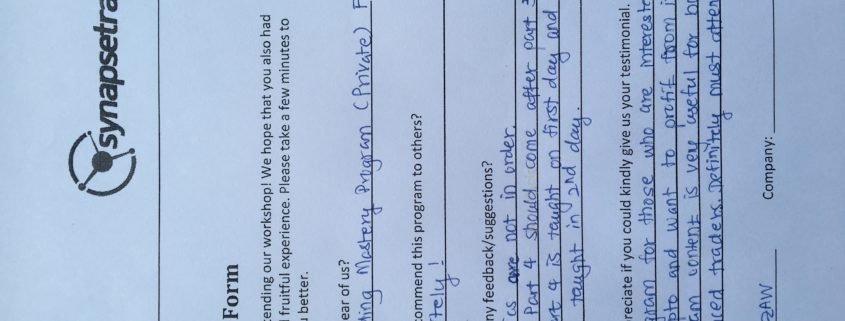 synapsetra
Form
tending our workshop! We hope that you also had
fruitful experience. Please take a few minutes to
u better.
ear of us?
ing Mastery Program (Private) F
commend this program to others?
tely!
ny feedback/suggestions?
cs are not in order.
Part 4 should come after part 3
rt 4 is taught on first day and
taught in 2nd day.
reciate if you could kindly give us your testimonial.
gram for those who are intereste
pto and want to profit from i
am content is very useful for b
ced traders. Definitely must atten
ZAW
Company: